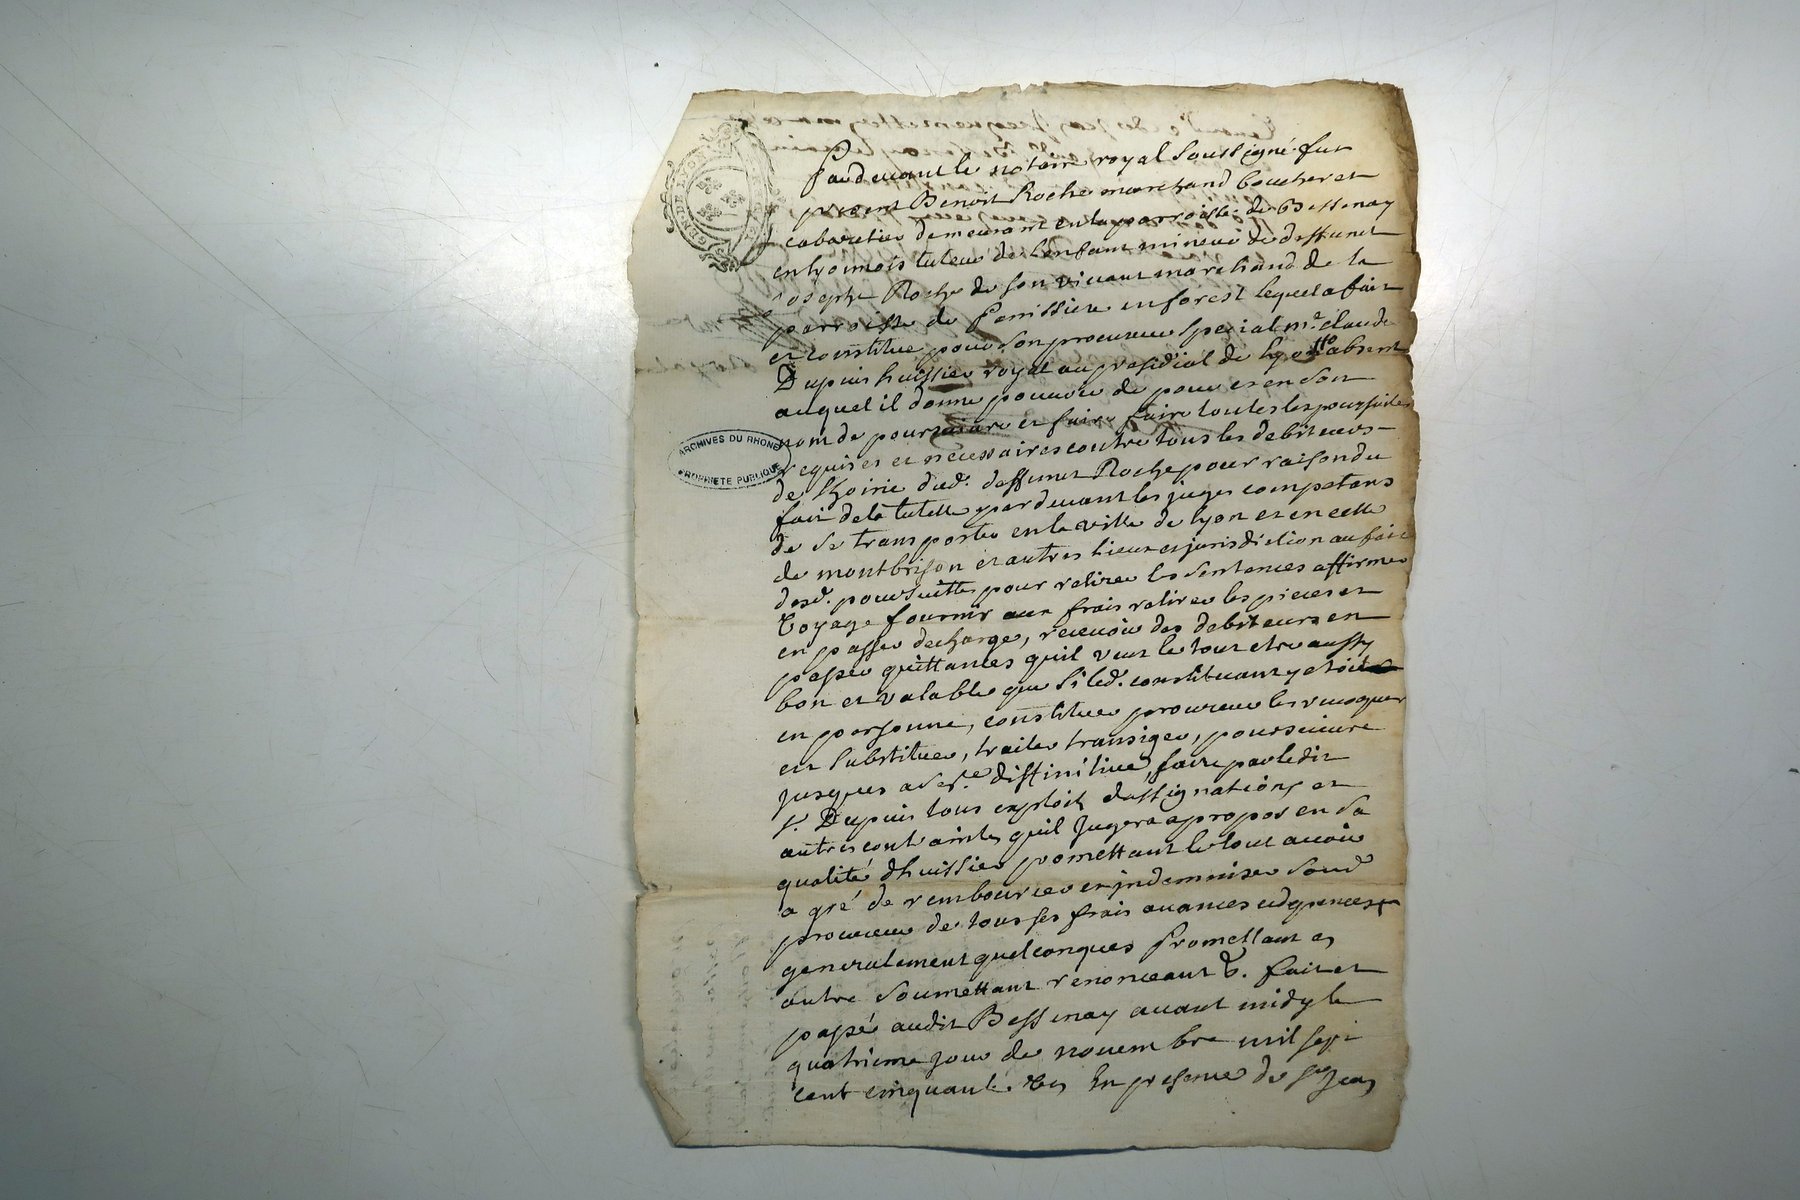 GEN. DE LYON
ARCHIVES DU RHONE
PROPRIETE PUBLIQUE
Pardevant le notaire royal soussigné fut
present Benoit Roche marchand boucher et
cabaretier demeurant en la parroisse de Bessenay
en lyonnois tuteur de l'enfant mineur de deffunct
Joseph Roche de son vivant marchand de la
parroisse de Panissiere en forest lequel a fait
et constitue pour son procureur special me. claude
Dupuis huissier royal au presidial de lyon absent
auquel il donne pouvoir de pour et en son
nom de poursuivre et faire faire toutes les poursuites
requises et necessaires contre tous les debiteurs
de l'hoirie dud. deffunct Roche pour raison du
fait de la tutelle pardevant les juges competans
de se transporter en la ville de lyon et en celle
de montbrison et autres lieux et jurisdiction au fait
desd. poursuittes pour retirer les sentences affirmer
voyage fournir aux frais retirer les pieces et
en passer decharge, recevoir des debiteurs en
passer quittances quil veut le tout etre aussy
bon et valable que si led. constituant y etoit
en personne, constituer procureur les revoquer
en substituer, traiter transiger, poursuivre
jusques a se.ce diffinitive, faire par ledit
s. Dupuis tous exploits d'assignations et
autres contraintes quil jugera apropos en sa
qualité d'huissier promettant le tout avoir
a gré de rembourcer et indemniser sond
procureur de tous ses frais avances et depences
generalement quelconques Promettant en
outre soumettant renonceant &. fait et
passé audit Bessenay avant midy le
quatrieme jour de novembre mil sept
cent cinquante En presence de sr Jean